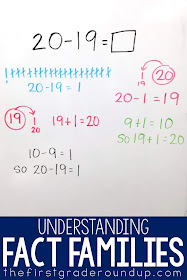 20-19=□
20-19=1
19 1 20
19+1=20
1 20
20-1=19
9+1=10
so 19+1=20
10-9=1
so 20-19=1
UNDERSTANDING
FACT FAMILIES
thefirstgraderoundup.com